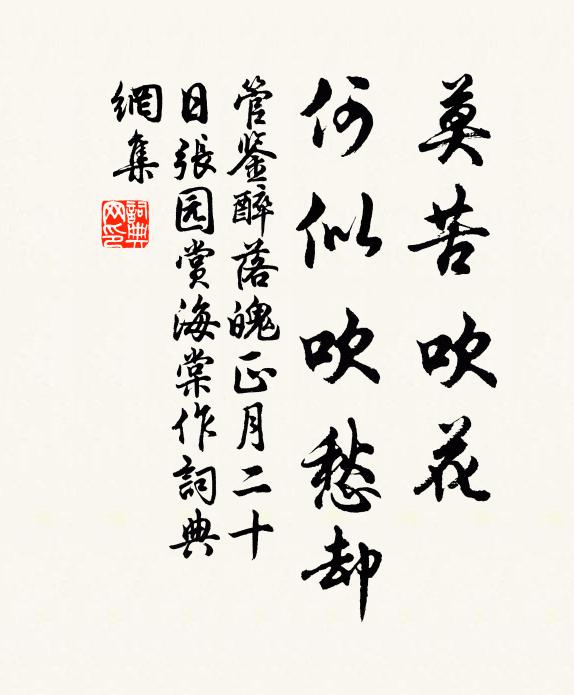 莫苦吹花
何似吹愁却
管鉴醉落魄正月二十
日張园赏海棠作詞典
網集
詞典网印